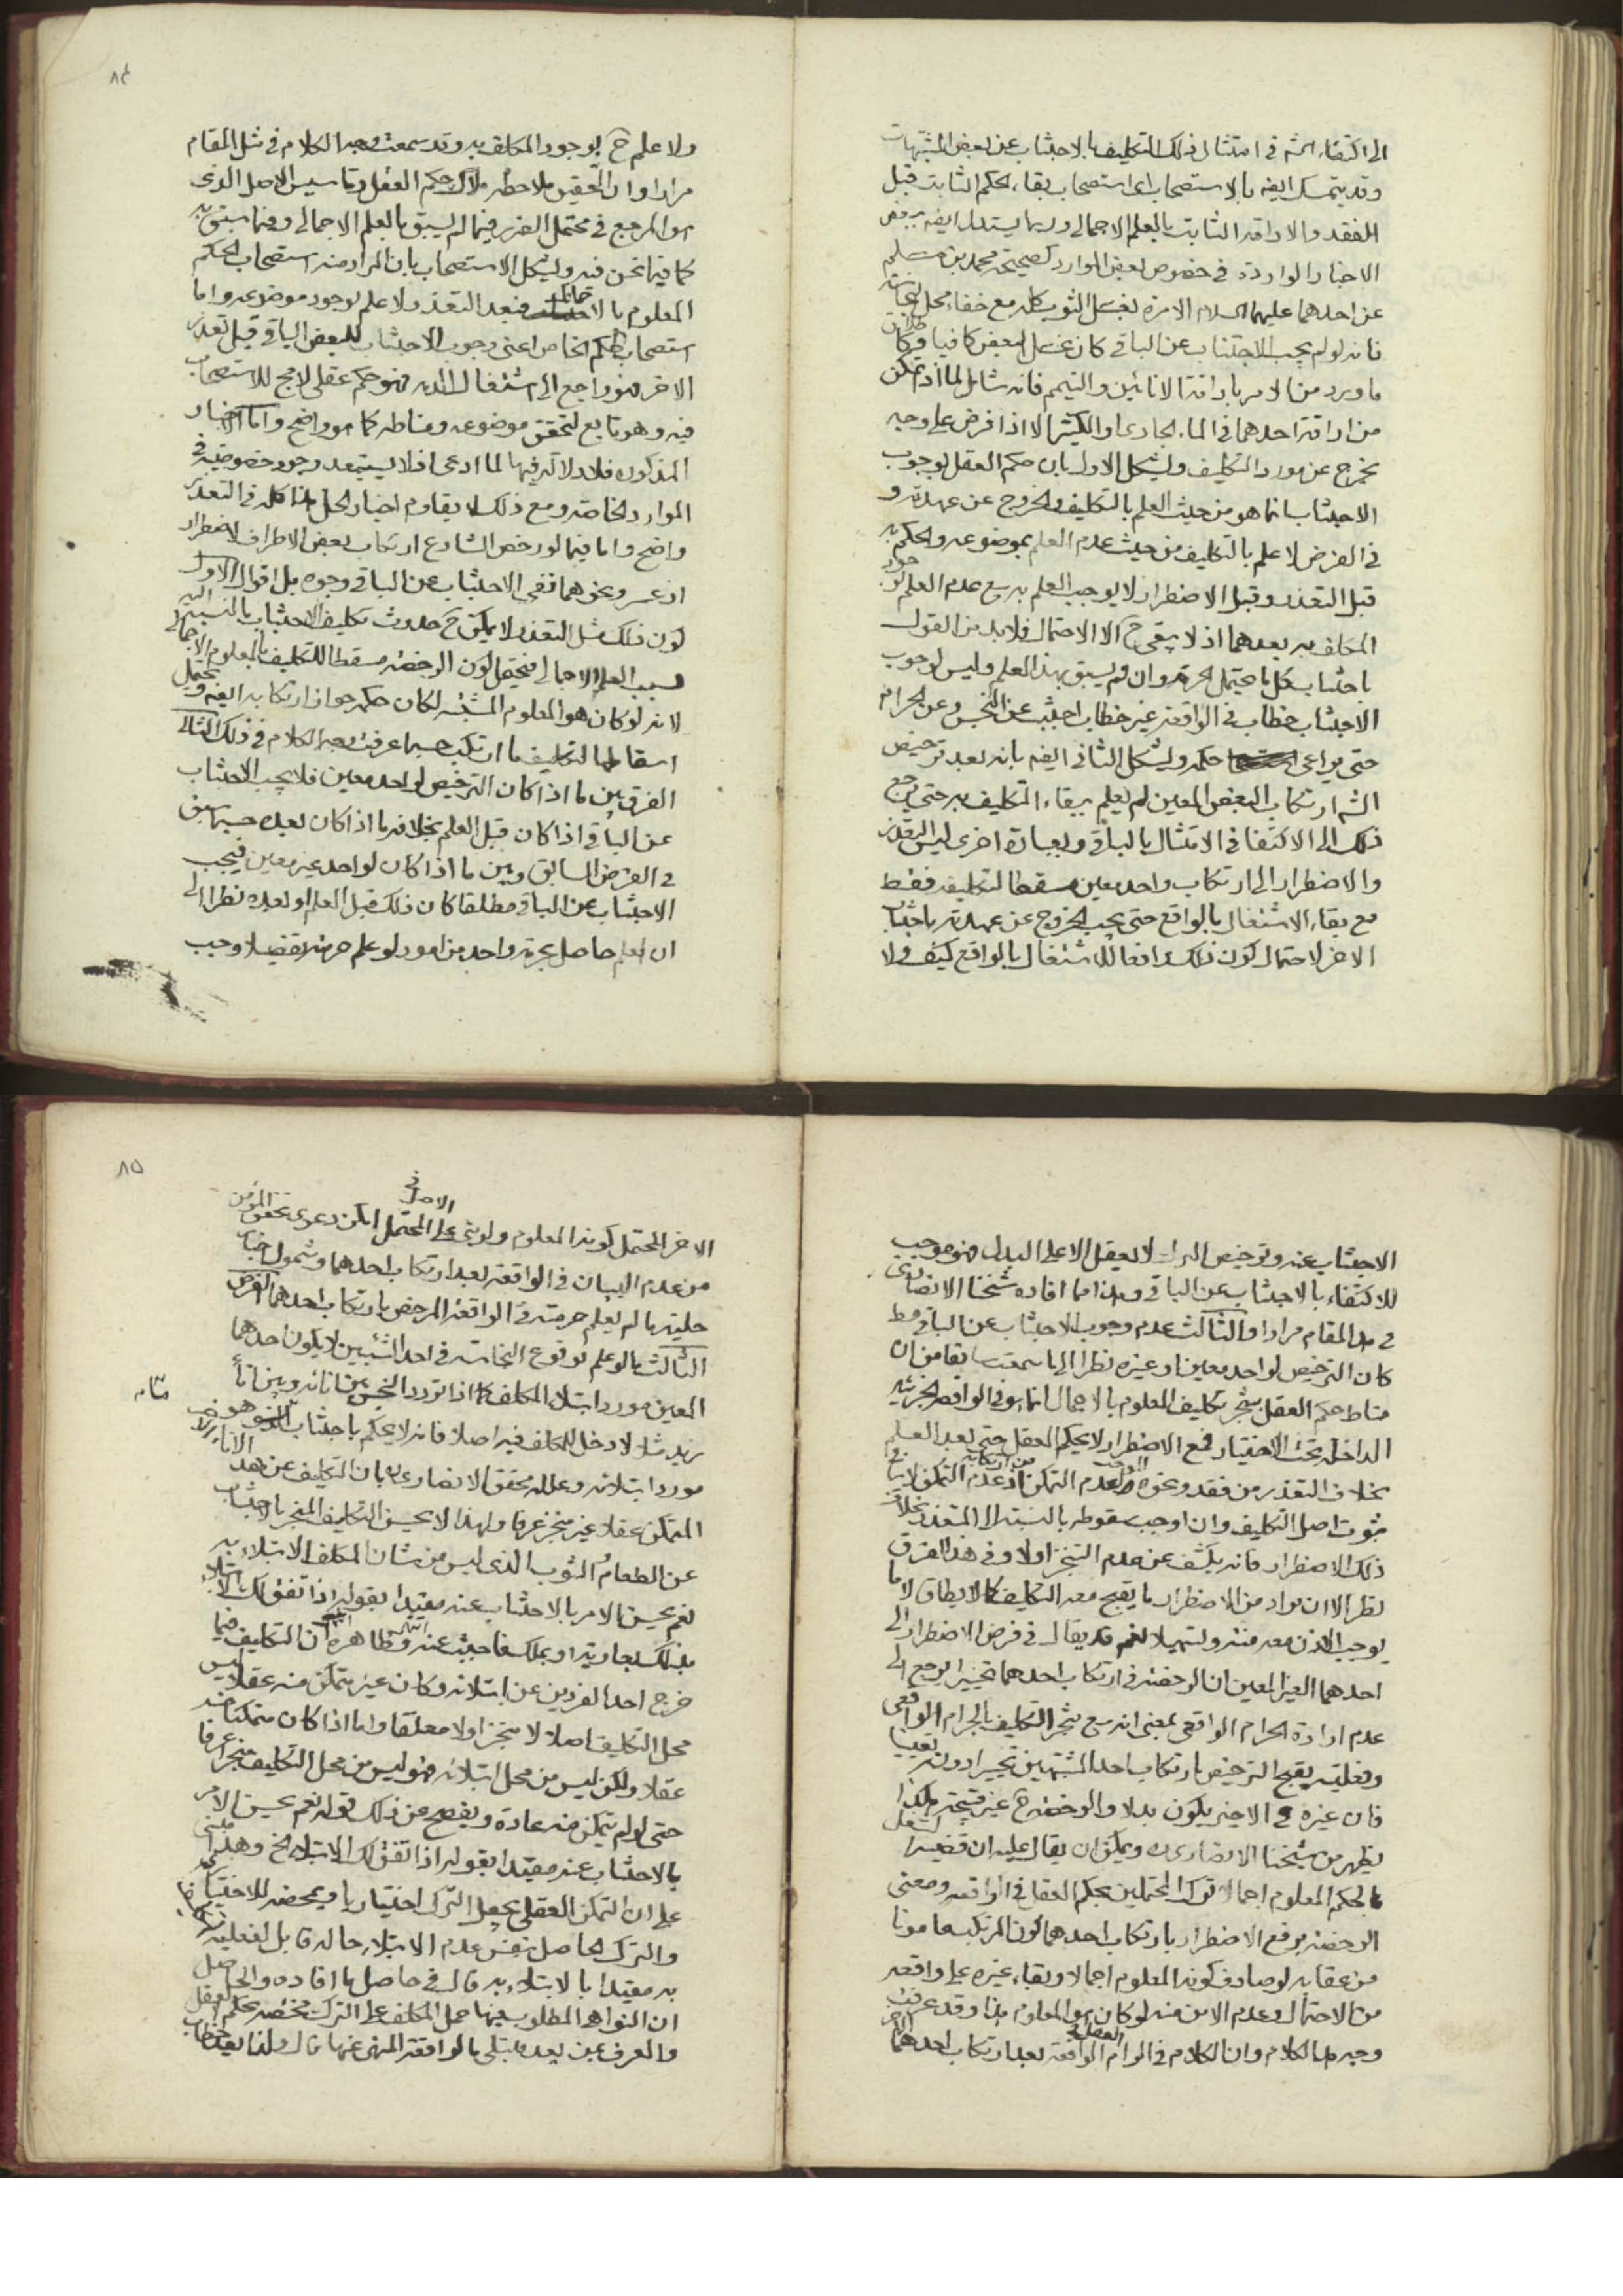 الى اكتفاء الشه فى امتثال ذلك التكليف بالاجتناب عن بعض المشتبهات
وقد يتمسك ايضه بالاستصحاب اى استصحاب بقاء الحكم الثابت قبل
الفقد والاراقه الثابت بالعلم الاجمالى وربما يستدل ايضه ببعض
الاخبار الواردة فى خصوص بعض الموارد كصحيحة محمد بن مسلم
عن احدهما عليهما السلام الامرة بغسل الثوب كله مع خفاء محل النجاسة
فانه لو لم يجب الاجتناب عن الباقى كان غسل البعض كافيا وكذا
ما ورد من الامر باراقة الانائين والتيمم فانه شامل لما اذا تمكن
من اراقة احدهما فى الماء الجارى او الكثير الا اذا فرض على وجه
يخرج عن مورد التكليف ويشكل الاول بان حكم العقل بوجوب
الاجتناب انما هو من حيث العلم بالتكليف والخروج عن عهدته و
فى الفرض لا علم بالتكليف من حيث عدم العلم بموضوعه والحكم به
قبل التعذر وقبل الاضطرار لا يوجب العلم به مع عدم العلم بوجود
المكلف به بعدهما اذ لا يبقى ح الا الاحتمال فلا بد من القول
باجتناب كل ما يحتمل الحرمة وان لم يسبق بهذا العلم وليس لوجوب
الاجتناب خطاب فى الواقعة غير خطاب اجتنب عن النجس وعن الحرام
حتى يراعى حكمه ويشكل الثانى ايضه بانه بعد ترخيص
الشه ارتكاب البعض المعين لم يعلم ببقاء التكليف به حتى يرجع
ذلك الى الاكتفا فى الامتثال بالباقى وبعبارة اخرى ليس التعذر
والاضطرار الى ارتكاب واحد معين مسقطا لتكليفه فقط
مع بقاء الاشتغال بالواقع حتى يجب الخروج عن عهدته باجتناب
الاخر لاحتمال كون ذلك رافعا للاشتغال بالواقع كيف ولا
٨٤
ولا علم ح بوجود المكلف به وقد سمعت وجه الكلام فى مثل المقام
مرارا وان التحقيق ملاحظه ملاك حكم العقل وتاسيس الاصل الذى
هو المرجع فى محتمل الضرر فيما لم يسبق بالعلم الاجمالى وفيما سبق به
كما فيما نحن فيه ويشكل الاستصحاب بان المراد منه استصحاب الحكم
المعلوم بالاجمال فبعد التعذر لا علم بوجود موضوعه واما
استصحاب الحكم الخاص اعنى وجوب الاجتناب للبعض الباقى قبل تعذر
الاخر فهو راجع الى اشتغال الذمه فهو حكم عقلى لا مج للاستصحاب
فيه وهو تابع لتحقق موضوعه ومناطه كما هو واضح واما الاخبار
المذكوره فلا دلالة فيها لما ادعى اذ لا يستبعد وجود خصوصية فى
الموارد الخاصه ومع ذلك لا يقاوم اخبار الحل هذا كله فى التعذر
واضح واما فيما لو رخص الشارع ارتكاب بعض الاطراف لاضطرار
او عسر ونحوهما ففى الاجتناب عن الباقى وجوه بل اقوال الاول
كون ذلك مثل التعذر لا يمكن ح حدوث تكليف الاجتناب بالنسبة اليه
بسبب العلم الاجمالى فيحتمل كون الرخصه مسقطا للتكليف بالمعلوم الاجمالى
لانه لو كان هو المعلوم المشتبه لكان حكمه جواز ارتكابه ايضه ويحتمل
اسقاطها لتكليف ما ارتكب حسبما عرفت وجه الكلام فى ذلك الثانى
الفرق بين ما اذا كان الترخيص لواحد معين فلا يجب الاجتناب
عن الباقى اذا كان قبل العلم بخلاف ما اذا كان بعده حسبما سبق
فى الفرض السابق وبين ما اذا كان لواحد غير معين فيجب
الاجتناب عن الباقى مطلقا كان ذلك قبل العلم او بعده نظرا الى
ان العلم حاصل بحرمة واحد من امور لو علم حرمته تفصيلا وجب
الاجتناب عنه وترخيص البدل لا يعقل الا على البدل فهو موجب
للاكتفاء بالاجتناب عن الباقى وهذا مما افاده شيخنا الانصارى
فى هذا المقام مرارا والثالث عدم وجوب الاجتناب عن الباقى مط
كان الترخيص لواحد معين او غيره نظرا الى ما سمعت سابقا من ان
مناط حكم العقل بتنجز تكليف المعلوم بالاجمال انما هو فى الواقعه الجزئيه
الداخله تحت الاختيار فمع الاضطرار لا يحكم العقل حتى بعد العلم
بخلاف التعذر من فقد ونحوه لعدم التمكن اذ عدم التمكن لا ينافى
ثبوت اصل التكليف وان اوجب سقوطه بالنسبة الى المتعذر بخلاف
ذلك الاضطرار فانه يكشف عن عدم التنجز اولا وفى هذا الفرق
نظر الا ان يراد من الاضطرار ما يقبح معه التكليف كما لا يطاق لا ما
يوجب الاذن معه منة وتسهيلا نعم قد يقال فى فرض الاضطرار الى
احدهما الغير المعين ان الرخصه فى ارتكاب احدهما تخييرا يرجع الى
عدم ارادة الحرام الواقعى بمعنى انه مع تنجز التكليف بالحرام الواقعى
وفعليته يقبح الترخيص بارتكاب احد المشتبهين تخييرا دون تعيينا
فان غيره ح الاجنر يكون بدلا والرخصه ح غير قبيحة هكذا
يظهر من شيخنا الانصارى ره ويمكن ان يقال عليه ان قضية الشغل
بالحكم المعلوم اجمالا ترك المحتملين بحكم العقل فى الواقعه ومعنى
الرخصه برفع الاضطرار بارتكاب احدهما كون المرتكب مامونا
من عقابه لو صادف كونه المعلوم اجمالا وبقاء غيره على واقعه
من الاحتمال وعدم الامن منه لو كان هو المعلوم هذا وقد عرفت
وجه هذا الكلام وان الكلام فى الزام العقل فى الواقعه بعد ارتكاب احدهما
٨٥
الاخر المحتمل كونه المعلوم ولو بنى على الاصل فى المحتمل امكن دعوى تحقق المؤمن
من عدم البيان فى الواقعه بعد ارتكاب احدهما وشمول اخبار
حليته ما لم يعلم حرمته فى الواقعه المرخص بارتكاب احدهما الفرض
الثالث ما لو علم بوقوع النجاسه فى احد الشيئين لا يكون احدهما
المعين مورد ابتلاء المكلف كما اذا تردد النجس بين انائه وبين اناء
زيد مثلا لا دخل للمكلف فيه اصلا فانه لا يحكم باجتناب ما هو فى
مورد ابتلائه وعلله محقق الانصارى ره بان التكليف عن هذا الاناء
المتمكن عقلا غير منجز عرفا ولهذا لا يحسن التكليف المنجز بالاجتناب
عن الطعام او الثوب الذى ليس من شان المكلف الابتلاء به
نعم يحسن الامر بالاجتناب عنه مقيدا بقوله اذا اتفق لك الابتلاء
بذلك بعارية او بملك فاجتنب عنه انتهى وظاهره ان التكليف فيما
خرج احد الفردين عن ابتلائه وكان غير متمكن منه عقلا ليس
محل التكليف اصلا لا منجزا ولا معلقا واما اذا كان متمكنا منه
عقلا ولكن ليس من محل ابتلائه فهو ليس من محل التكليف منجزا عرفا
حتى لو لم يتمكن منه عادة ويفصح عن ذلك قوله نعم يحسن الامر
بالاجتناب عنه مقيدا بقوله اذا اتفق لك الابتلاء الخ وهذا مبنى
على ان التمكن العقلى يجعل الترك اختياريا
والترك الحاصل بنفس عدم الابتلاء حاله قابل لفعلية
به مقيدا بالابتلاء به قال فى حاصل ما افاده والحاصل
ان النواهى المطلوب فيها حمل المكلف على الترك مختصه بحكم العقل
والعرف بمن يعد مبتلى بالواقعة المنهى عنها قال ولذا يعد خطاب